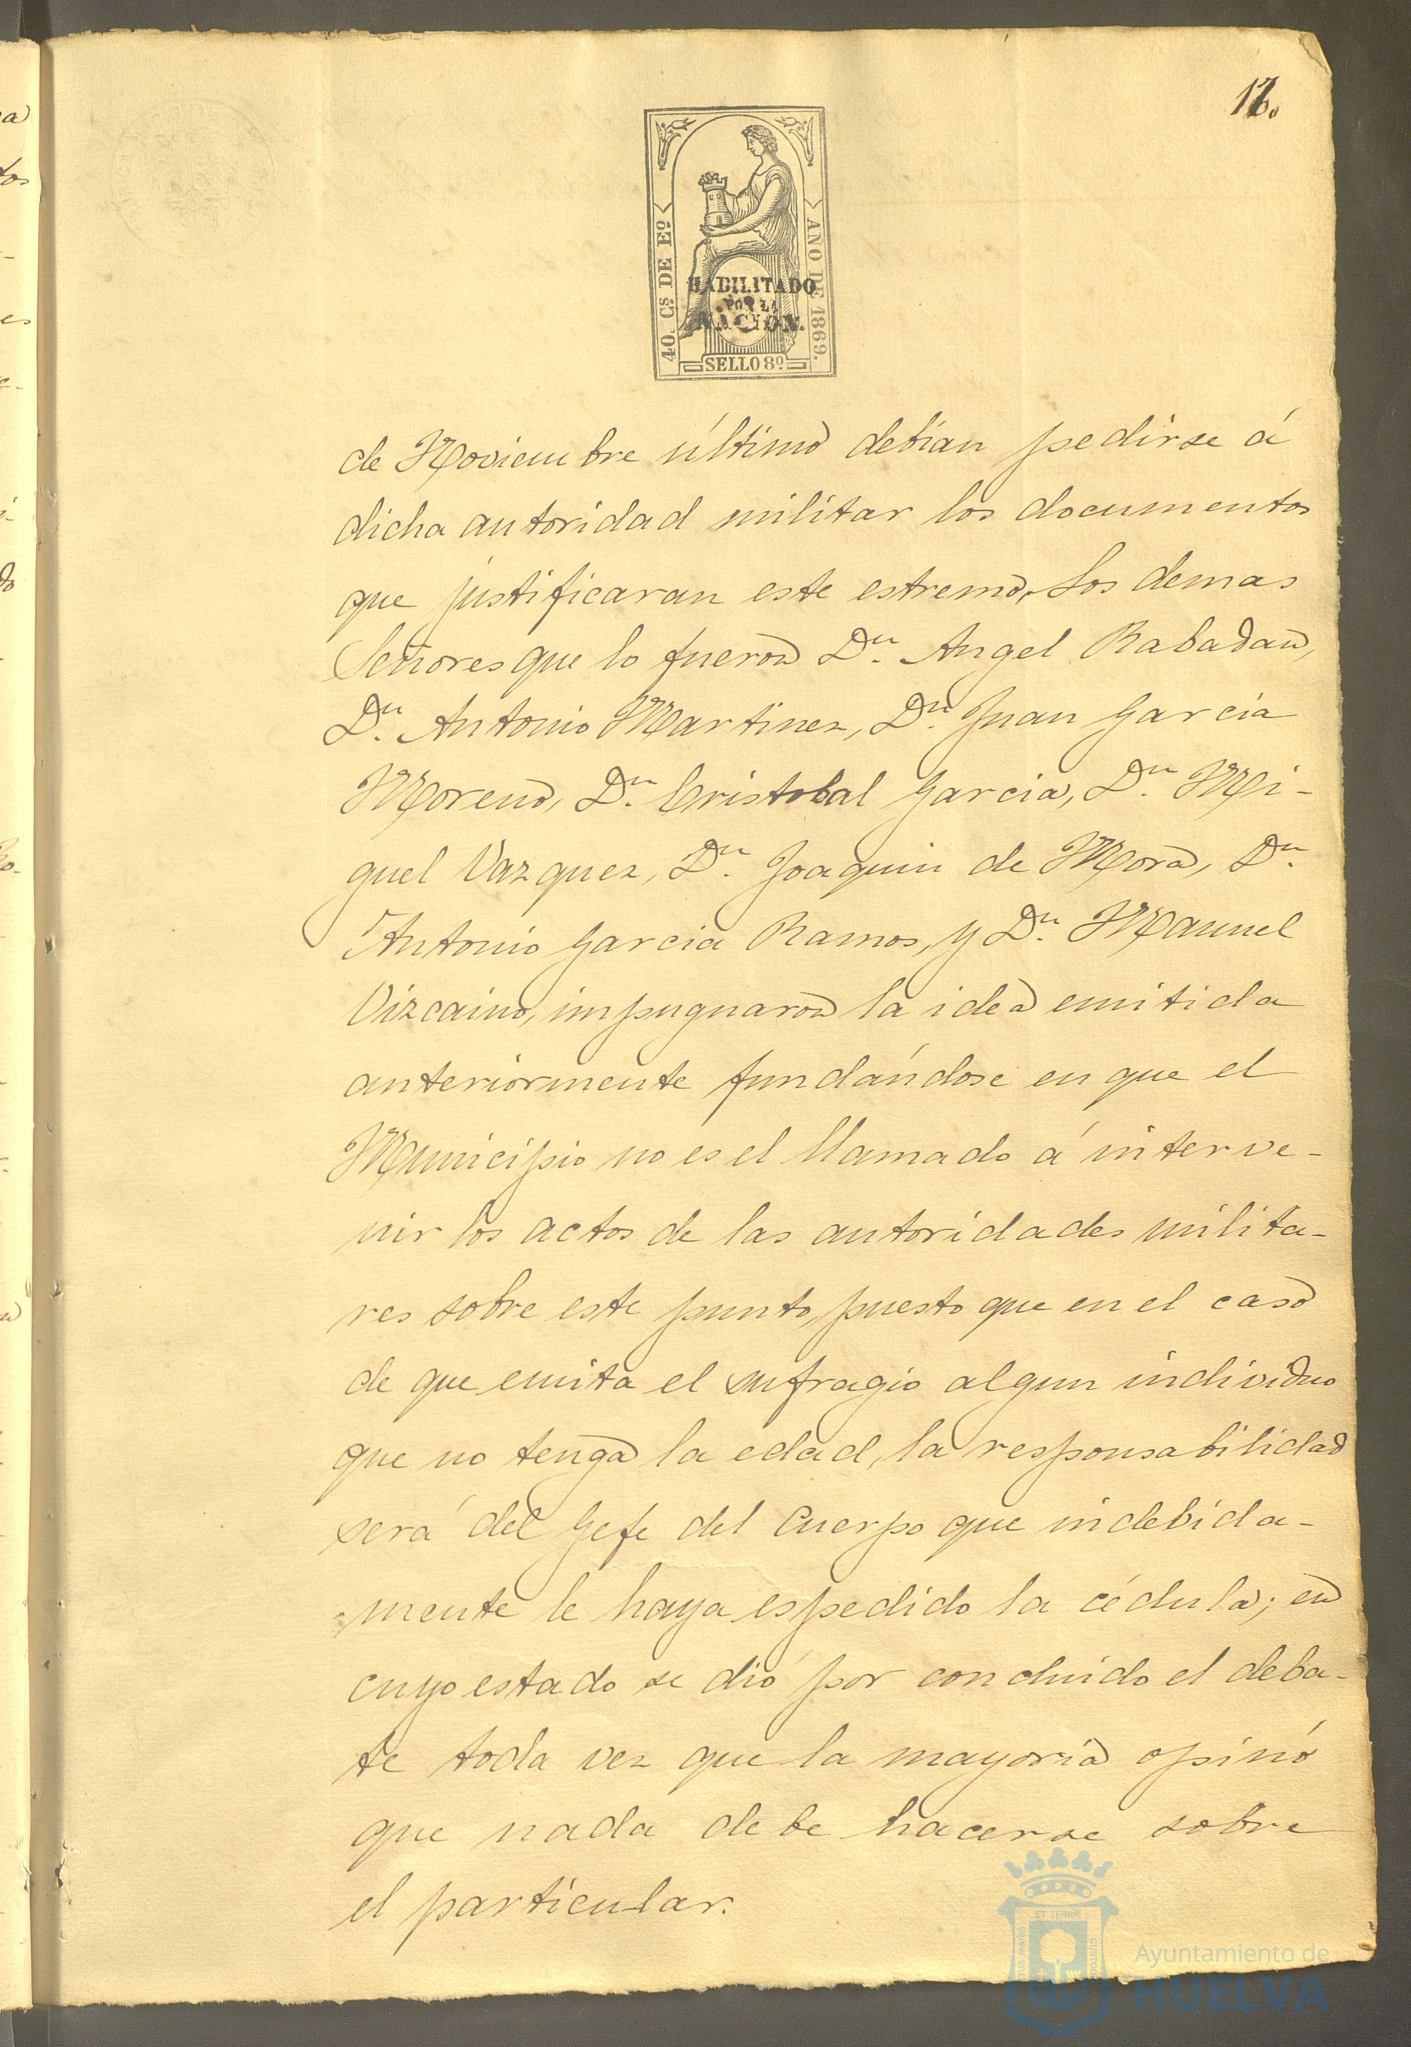 40. Cs. DE Eo. AÑO DE 1869.
HABILITADO
POR LA
NACION.
SELLO 8º
de Noviembre último debian pedirse á
dicha autoridad militar los documentos
que justificaran este estremo, Los demas
Señores que lo fueron Dn. Angel Rabadan,
Dn. Antonio Martinez, Dn. Juan Garcia
Moreno, Dn. Cristobal Garcia, Dn. Mi-
guel Vazquez, Dn. Joaquin de Mora, Dn.
Antonio Garcia Ramos, y Dn. Manuel
Vizcaino, impugnaron la idea emitida
anteriormente fundándose en que el
Municipio no es el llamado á interve-
nir los actos de las autoridades milita-
res sobre este punto, puesto que en el caso
de que emita el sufragio algun individuo
que no tenga la edad, la responsabilidad
será del Gefe del Cuerpo que indebida-
mente le haya espedido la cédula; en
cuyo estado se dió por concluido el deba-
te toda vez que la mayoria opinó
que nada debe hacerse sobre
el particular.
ET TERRAE
Ayuntamiento de
HUELVA